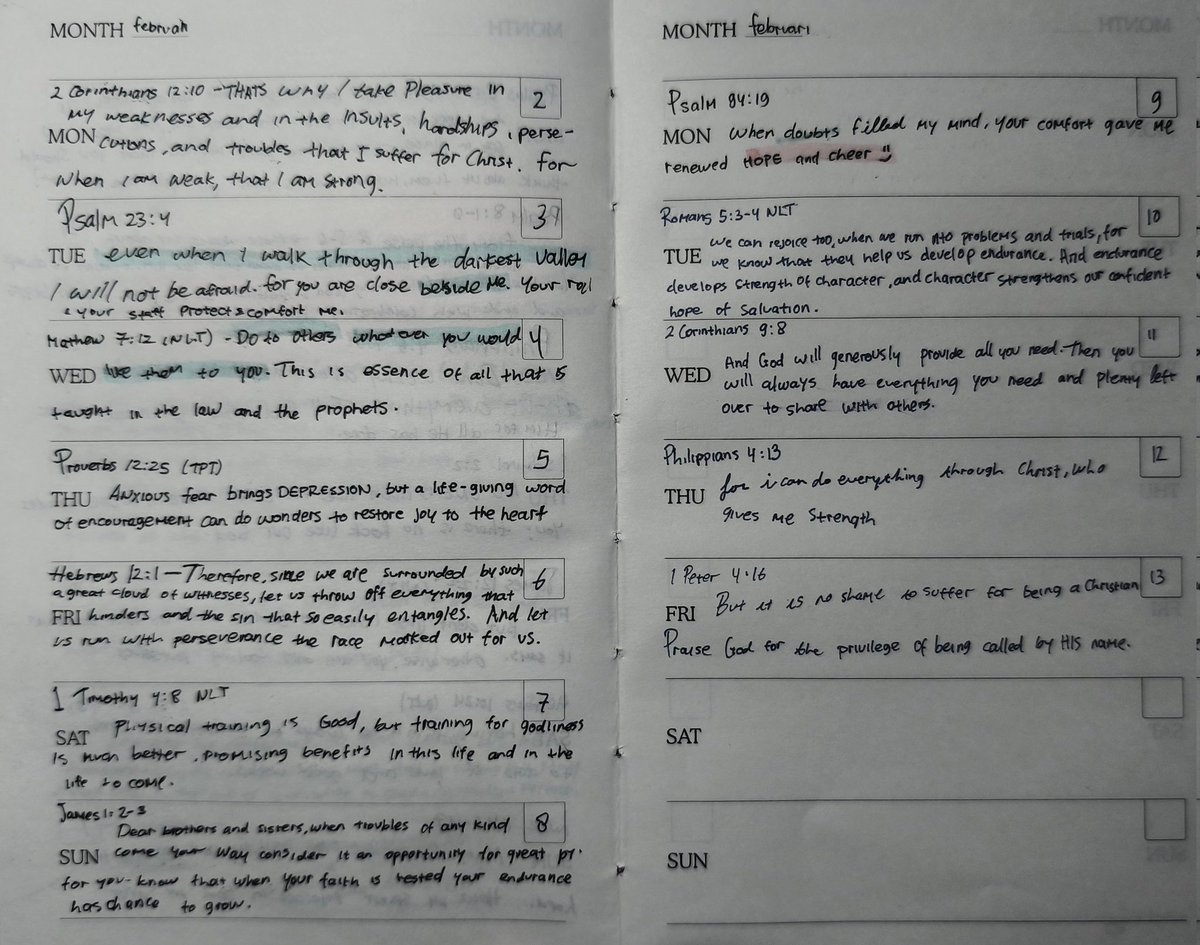 MONTH februari
2 Corinthians 12:10 - THATS why I take Pleasure in
2
my weaknesses and in the insults, hardships, perse-
MON cutions, and troubles that I suffer for Christ. for
when I am weak, that I am strong.
Psalm 23:4
3
TUE even when I walk through the darkest valley
I will not be afraid. for you are close beside me. Your
& your staff Protect & comfort me.
Mathew 7:12 (NLT) - Do to others whatever you would
4
WED like them to you. This is essence of all that is
taught in the law and the prophets.
Proverbs 12:25 (TPT)
5
THU Anxious fear brings DEPRESSION, but a life-giving word
of encouragement can do wonders to restore joy to the heart
Hebrews 12:1 - Therefore, since we are surrounded by such
6
a great cloud of witnesses, let us throw off everything that
FRI hinders and the sin that so easily entangles. And let
us run with perseverance the race marked out for us.
1 Timothy 4:8 NLT
7
Physical training is Good, but training for godliness
SAT
is much better, promising benefits in this life and in the
life to come.
James 1:2-3
8
Dear brothers and sisters, when troubles of any kind
SUN come your way consider it an opportunity for great
for you know that when your faith is tested your endurance
has chance to grow.
MONTH februari
Psalm 94:19
9
MON when doubts filled my mind, your comfort gave me
renewed HOPE and cheer
Romans 5:3-4 NLT
10
we can rejoice too, when we run into problems and trials, for
TUE we know that they help us develop endurance. And endurance
develops strength of character, and character strengthens our confident
hope of salvation.
2 Corinthians 9:8
11
And God will generously provide all you need. Then you
WED will always have everything you need and plenty left
over to share with others.
Philippians 4:13
12
for i can do everything through Christ, who
THU
gives me strength
1 Peter 4:16
13
But it is no shame to suffer for being a Christian
FRI
Praise God for the privilege of being called by HIS name.
SAT
SUN